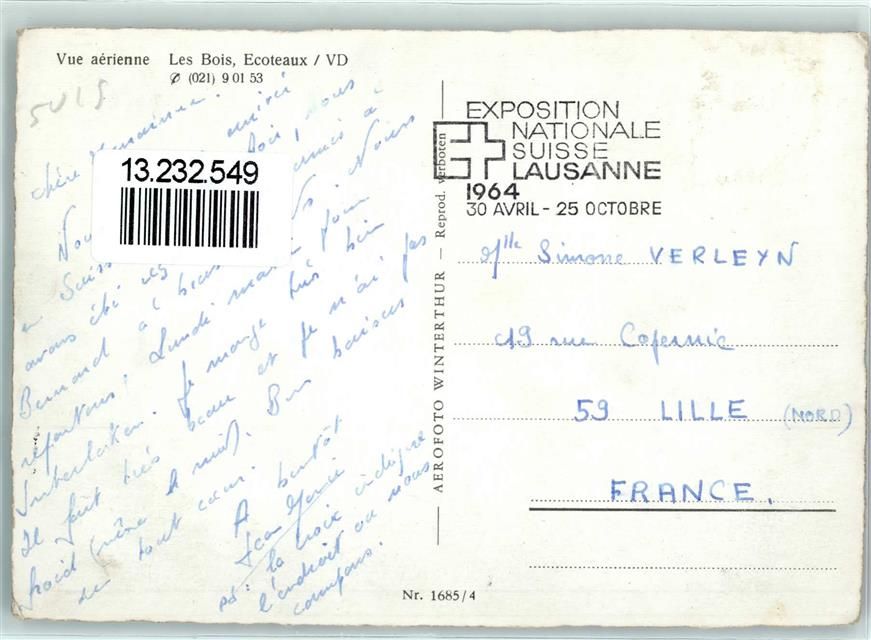 Vue aérienne Les Bois, Ecoteaux / VD
(021) 9 01 53
SUIS
13.232.549
chère
Nous
en Suisse
avons été
Bernard à
repartons, Lundi matin pour
Interlaken. Je mange très bien
Il fait très beau et je n'ai pas
froid (même la nuit). Bons baisers
de tout cœur.
A bientôt
Jean
ps: la croix indique
l'endroit où nous
campons.
AEROFOTO WINTERTHUR — Reprod. verboten
EXPOSITION
NATIONALE
SUISSE
LAUSANNE
1964
30 AVRIL - 25 OCTOBRE
Mlle Simone VERLEYN
19 rue Copernic
59 LILLE (NORD)
FRANCE.
Nr. 1685/4